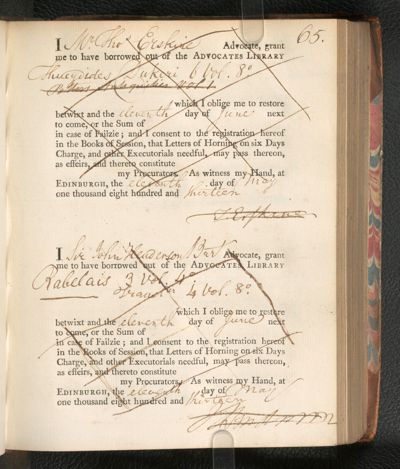 65.
I Mr. Thos. Erskine Advocate, grant
me to have borrowed out of the ADVOCATES LIBRARY
Thucydides Dukeri 6 Vol. 8o
Antiquities vol 1
which I oblige me to restore
betwixt and the eleventh day of June next
to come, or the Sum of
in case of Failzie; and I consent to the registration hereof
in the Books of Session, that Letters of Horning on six Days
Charge, and other Executorials needful, may pass thereon,
as effeirs, and thereto constitute
my Procurators. As witness my Hand, at
EDINBURGH, the eleventh day of May
one thousand eight hundred and thirteen
T Erskine
I Sir John Henderson Bart. Advocate, grant
me to have borrowed out of the ADVOCATES LIBRARY
Rabelais 3 Vol. 4to
4 Vol. 8o.
which I oblige me to restore
betwixt and the eleventh day of June next
to come, or the Sum of
in case of Failzie; and I consent to the registration hereof
in the Books of Session, that Letters of Horning on six Days
Charge, and other Executorials needful, may pass thereon,
as effeirs, and thereto constitute
my Procurators. As witness my Hand, at
EDINBURGH, the eleventh day of May
one thousand eight hundred and thirteen